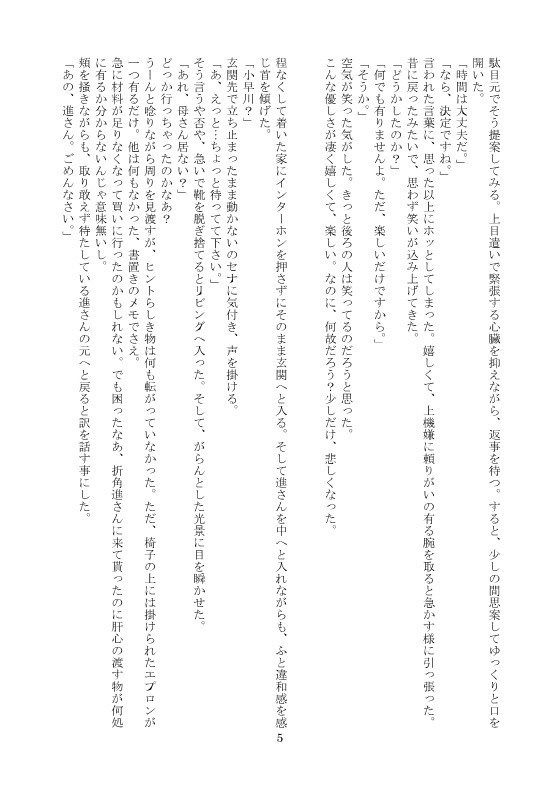 駄目元でそう提案してみる。上目遣いで緊張する心臓を抑えながら、返事を待つ。すると、少しの間思案してゆっくりと口を
開いた。
「時間は大丈夫だ。」
「なら、決定ですね。」
言われた言葉に、思った以上にホッとしてしまった。嬉しくて、上機嫌に頼りがいの有る腕を取ると急かす様に引っ張った。
昔に戻ったみたいで、思わず笑いが込み上げてきた。
「どうかしたのか？」
「何でも有りませんよ。ただ、楽しいだけですから。」
「そうか。」
空気が笑った気がした。きっと後ろの人は笑ってるのだろうと思った。
こんな優しさが凄く嬉しくて、楽しい。なのに、何故だろう？少しだけ、悲しくなった。
程なくして着いた家にインターホンを押さずにそのまま玄関へと入る。そして進さんを中へと入れながらも、ふと違和感を感
じ首を傾げた。
「小早川？」
玄関先で立ち止まったまま動かないのセナに気付き、声を掛ける。
「あ、えっと…ちょっと待ってて下さい。」
そう言うや否や、急いで靴を脱ぎ捨てるとリビングへ入った。そして、がらんとした光景に目を瞬かせた。
「あれ、母さん居ない？」
どっか行っちゃったのかなあ？
うーんと唸りながら周りを見渡すが、ヒントらしき物は何も転がっていなかった。ただ、椅子の上には掛けられたエプロンが
一つ有るだけ。他は何もなかった、書置きのメモでさえ。
急に材料が足りなくなって買いに行ったのかもしれない。でも困ったなあ、折角進さんに来て貰ったのに肝心の渡す物が何処
に有るか分からないんじゃ意味無いし。
頬を掻きながらも、取り敢えず待たしている進さんの元へと戻ると訳を話す事にした。
「あの、進さん。ごめんなさい。」
5